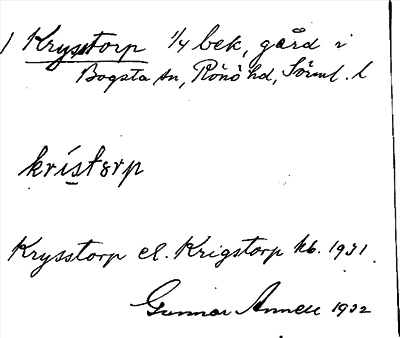 1 Krysstorp 1/4 bek, gård i
Bogsta sn, Rönö hd, Sörml. l
kristorp
Krysstorp el. Krigstorp kb. 1931.
Gunnar Annell 1932